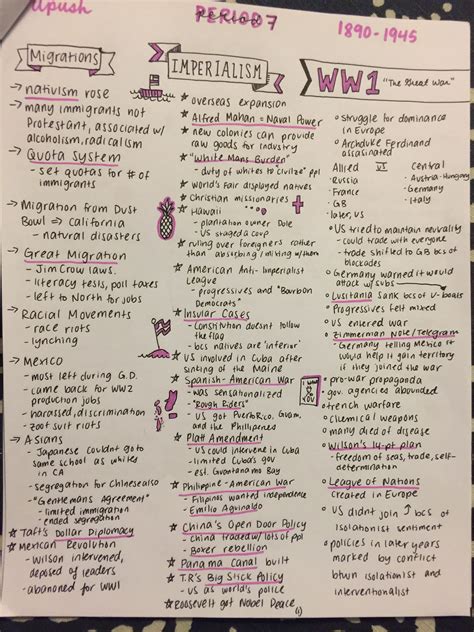 apush
PERIOD 7
1890-1945
Migrations
→ nativism rose
→ many immigrants not
Protestant, associated w/
alcoholism, radicalism
→ Quota System
- set quotas for # of
immigrants
→ Migration from Dust
Bowl ⇒ California
- natural disasters
→ Great Migration
- Jim Crow laws.
- literacy tests, poll taxes
- left to North for jobs
→ Racial Movements
- race riots
- lynching
→ Mexico
- most left during G.D.
- came back for WW2
production jobs
- harassed, discrimination
- zoot suit riots
→ Asians
- Japanese couldnt go to
same school as whites
in CA
- segregation for Chinese also
- "Gentlemans Agreement"
- limited immigration
- ended segregation
★ Taft's Dollar Diplomacy
★ Mexican Revolution
- Wilson intervened,
deposed of leaders
- abandoned for WW1
IMPERIALISM
★ overseas expansion
★ Alfred Mahan = Naval Power
★ new colonies can provide
raw goods for industry
★ "White Mans Burden"
- duty of whites to "civilize" ppl
★ world's Fair displayed natives
★ Christian missionaries
★ Hawaii
- plantation owner Dole
- US staged a coup
★ ruling over foreigners rather
than absorbing / mixing w/ them
★ American Anti-Imperialist
League
- progressives and "Bourbon
Democrats"
★ Insular Cases
- Constitution doesnt follow
the flag
- bcs natives are 'inferior'
★ US involved in Cuba after
sinking of the Maine
★ Spanish-American War
- was sensationalized
- "Rough Riders"
- US got Puerto Rico, Guam,
and the Phillipenes
★ Platt Amendment
- US could intervene in Cuba
- limited Cuba's gov
- est. Guantanamo Bay
★ Philippine-American War
- Filipinos wanted independence
- Emilio Aginaldo
★ China's Open Door Policy
- China traded w/ lots of ppl
- Boxer rebellion
★ Panama Canal built
★ T.R.'s Big Stick Policy
- US as world's police
★ Roosevelt got Nobel Peace
(1)
WW1 "The Great War"
○ struggle for dominance
in Europe
○ Archduke Ferdinand
assasinated
Allied VS Central
- Russia - Austria-Hungary
- France - Germany
- GB - Italy
- later, US
○ US tried to maintain neutrality
- could trade with everyone
- trade shifted to GB bcs of
blockades
○ Germany warned it would
attack w/ subs
○ Lusitania sank bcs of u-boats
○ Progressives felt mixed
○ US entered war
○ Zimmerman Note/Telegram
- Germany telling Mexico it
would help it gain territory
if they joined the war
I WANT YOU
○ pro-war propaganda
○ gov. agencies abounded
○ trench warfare
○ chemical weapons
○ many died of disease
○ Wilson's 14-pt plan
- freedom of seas, trade, self-
determination
○ League of Nations
created in Europe
○ US didnt join ↑ bcs of
isolationist sentiment
○ policies in later years
marked by conflict
btwn isolationist and
interventionalist